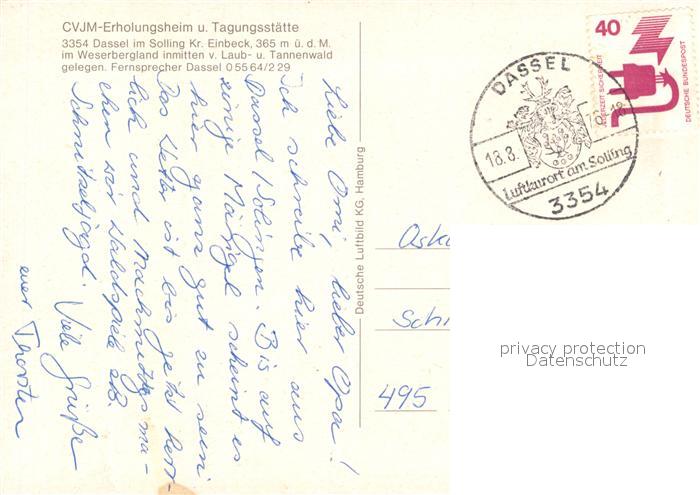 CVJM-Erholungsheim u. Tagungsstätte
3354 Dassel im Solling Kr. Einbeck, 365 m ü. d. M.
im Weserbergland inmitten v. Laub- u. Tannenwald
gelegen. Fernsprecher Dassel 0 55 64/2 29
Liebe Omi, lieber Opa!
Ich schreibe hier aus
Dassel / Solingen. Bis auf
einige Mängel scheint es
hier ganz gut zu sein.
Das Wetter ist bis jetzt herr-
lich und Nachmittags ma-
chen wir Waldspiele
Schnitzeljagd. Viele Grüße
euer Thorsten
Deutsche Luftbild KG, Hamburg
40
JEDERZEIT SICHERHEIT
DEUTSCHE BUNDESPOST
DASSEL
18.8.
Luftkurort am Solling
3354
Schi
495
privacy protection
Datenschutz